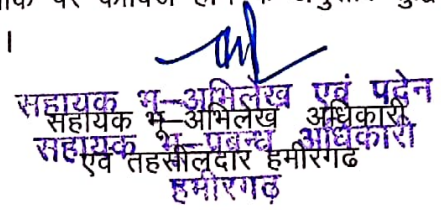 पर काबिज होने के अनुसार
।
सहायक भू-अभिलेख एवं पदेन
सहायक भू-अभिलेख अधिकारी
सहायक भू-प्रबन्ध अधिकारी
एवं तहसीलदार हमीरगढ
हमीरगढ़